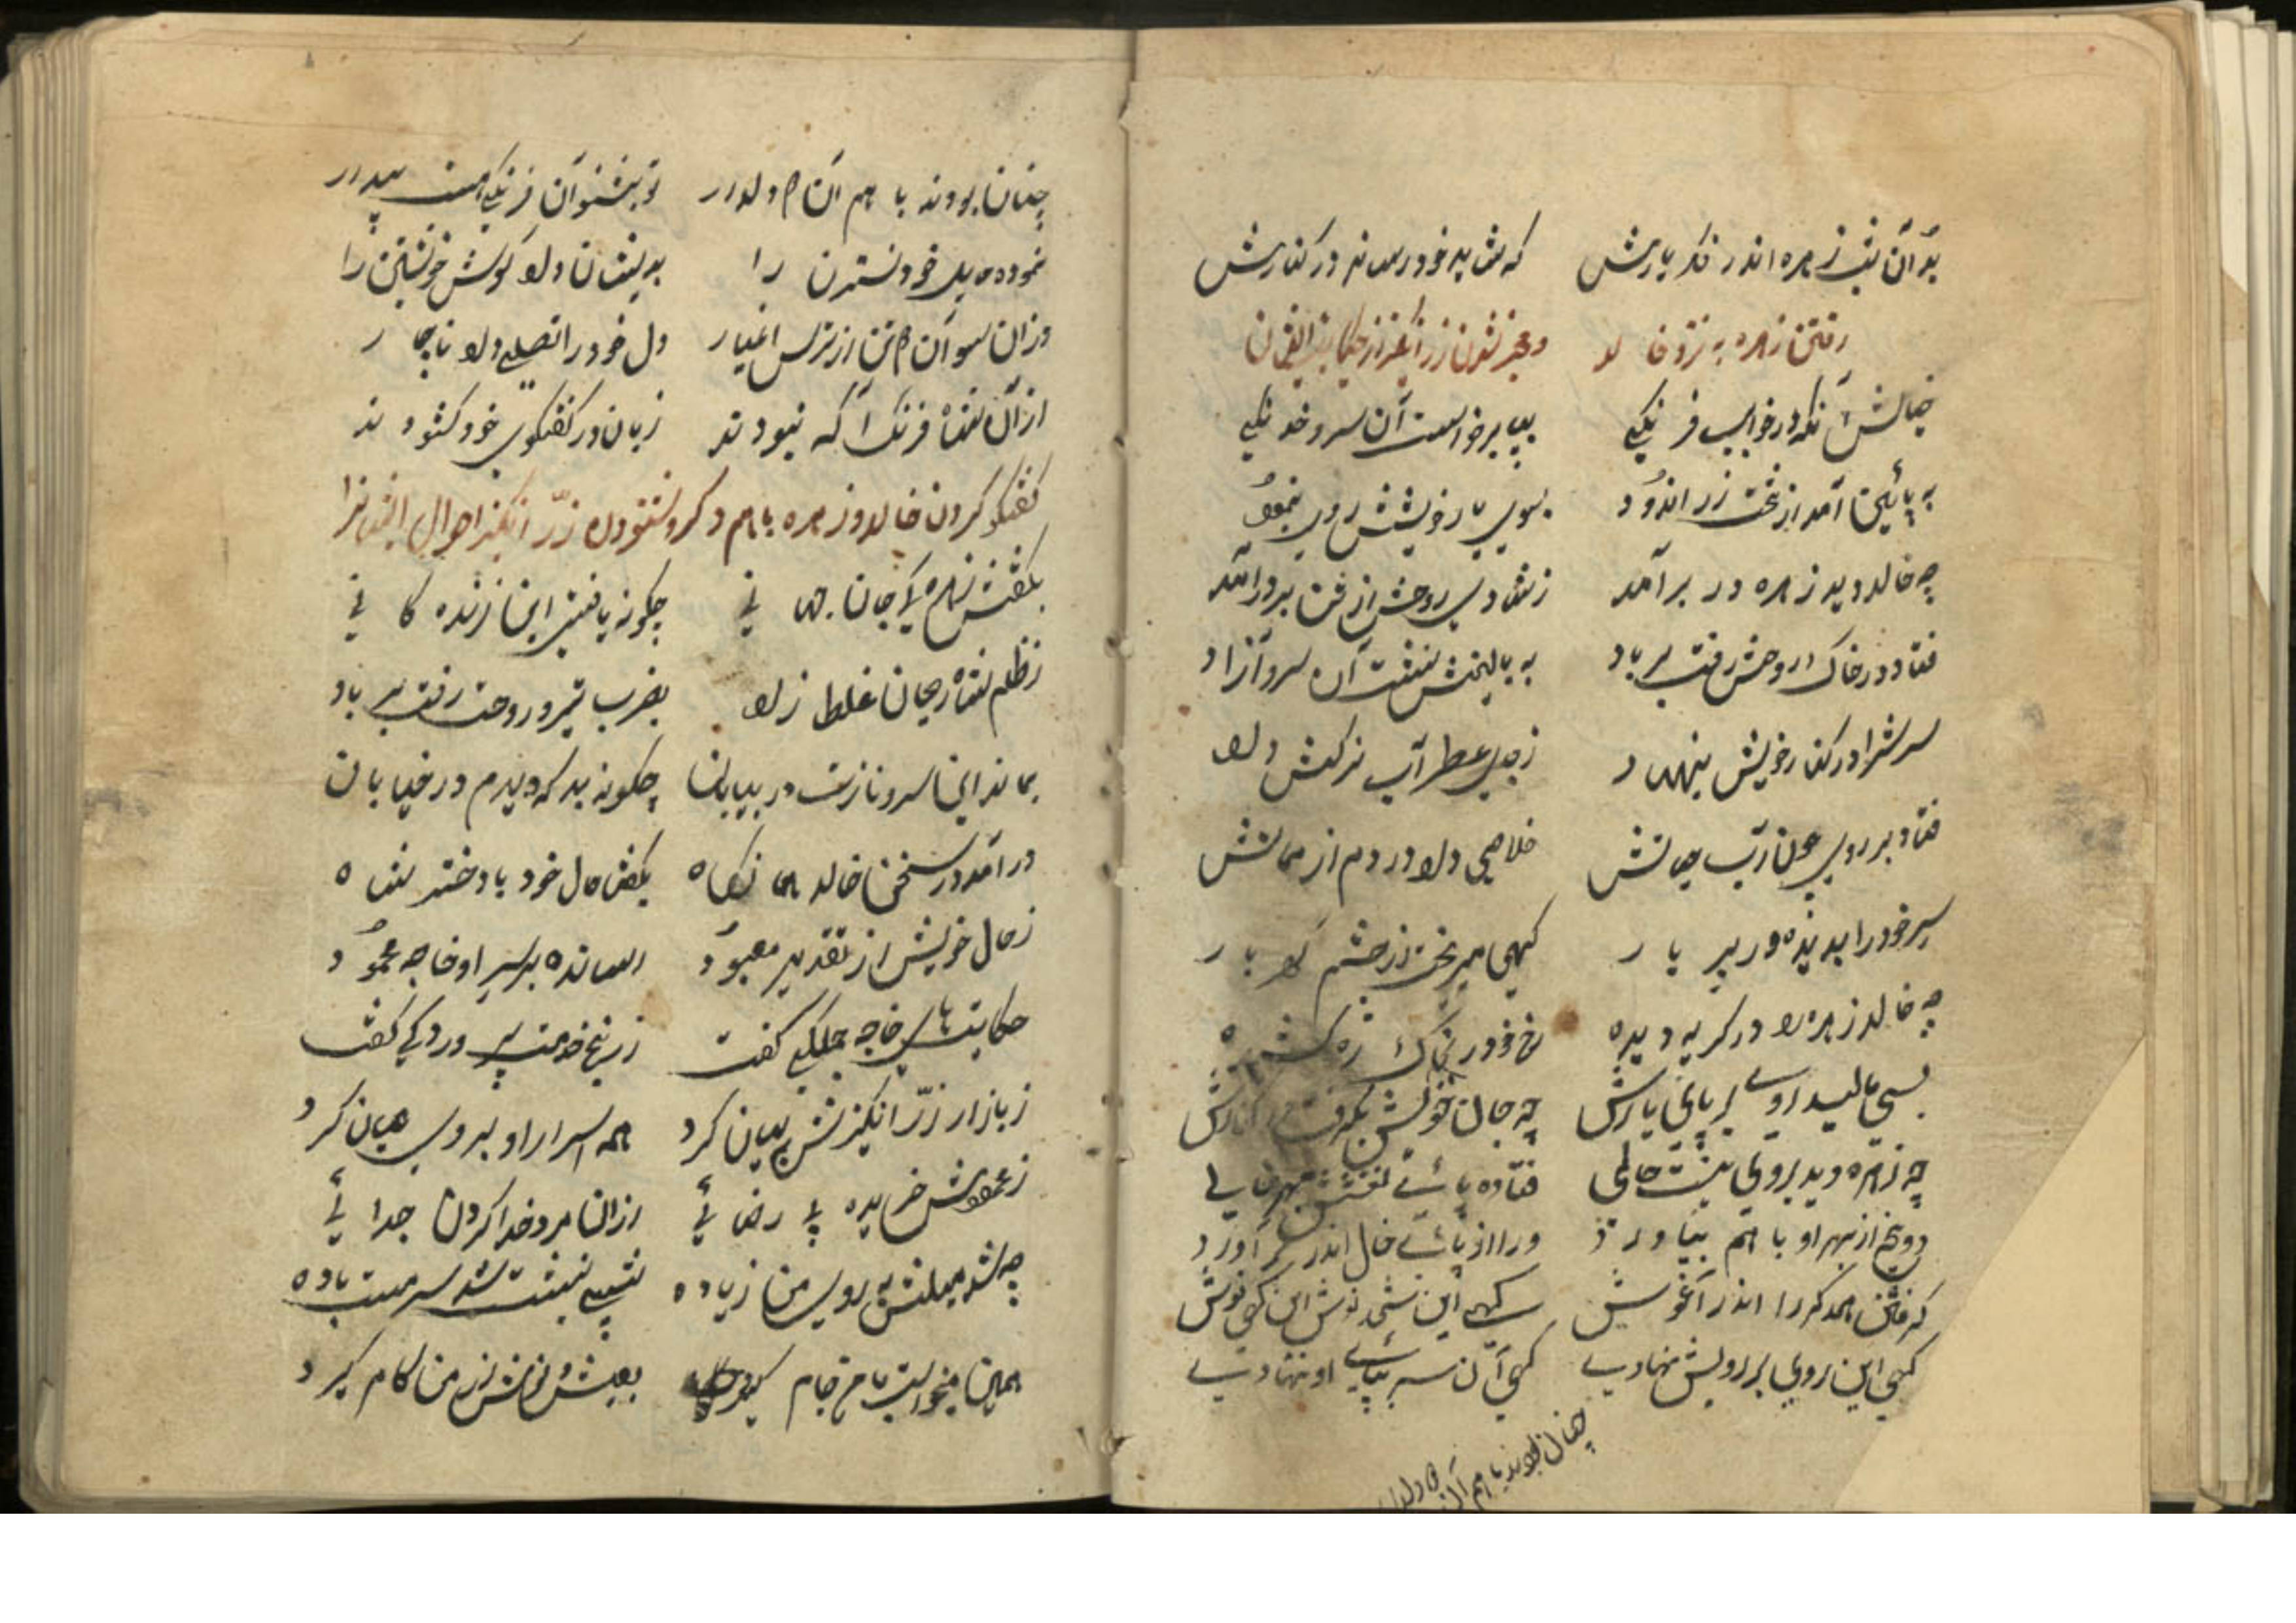 بدان شب زهره اندر فکر یارش که شاید خود رساند در کنارش
رفتن زهره به نزد خالد و خبر شدن زر انگیز از حکایت ایشان
خیالش آنکه در خوابست فرنگی بپا برخواست آن سرو خدنگی
به پائین آمد از تخت زر اندود بسوی یار خویشش روی بنمود
چه خالد دید زهره در بر آمد ز شادی روحش از تن بدر آمد
فتاد در خاک روحش رفت بر باد به بالینش نشست آن سرو آزاد
سرش را در کنار خویش بنهاد ز جوی عطر آب نرکش داد
فتاد بر روی چون آب حیاتش خلاصی داد در دم از مماتش
سر خود را بدیده در بر یار کهی میریخت از چشم
چه خالد زهره را در کریه دیده رخ خود در خاک
بسی مالید روی بر پای یارش چه جان خویش بکرفت در کنارش
چه زهره دید بروی حالی فتاده پای
از بهر او با هم بیاورد ورا از پای خال اندر آورد
کرفتن همدکر را اندر آغوش کهی این
کهی این روی بر رویش نهادی کهی آن سر بپای او نهادی
چنان بودند با هم آن دو دلدار
چنان بودند با هم آن دو دلدار تو بشنو آن فرنکی مست بیدار
نموده میل خود نسترن را بدیشان داد کوش خویشتن را
وزان سو آن دو تن از ترس اغیار دل خود را تسلی داد ناچار
از آن شاه فرنک آکه نبودند زبان در کفتکوی خود کشودند
کفتکو کردن خالد و زهره با هم دکر و شنودن زر انکیز احوال ایشانرا
بکفتش زهره کی جان جهانی چکونه یافتی این زنده کانی
ز ظلم شاه ریحان غلط زاد بضرب تیر و روحت رفت بر باد
بماند این سرو نازت در بیابان چکونه بد که دیدم در خیابان
در آمد در سخن خالد بناکاه بکفت حال خود با دختر شاه
ز حال خویش از تقدیر معبود رساندە بر سر او خاجه محمود
حکایتهای خاجه جملکی کفت ز رنج خدمت پیر و
ز بازار زر انکیزش بیان کرد همه اسرار او بروی عیان کرد
ز عمویش خریده بی رضائی از ان مرد خدا کردن جدائی
چه شد میلش به روی من زیاده شبی بنشست شد سرمست باده
همین میخواست تا من جام کیرد بعیش و نوش از من کام کیرد